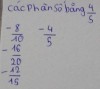 các phân số bằng 4/5
-8/10  -4/5
-16/20
-12/15